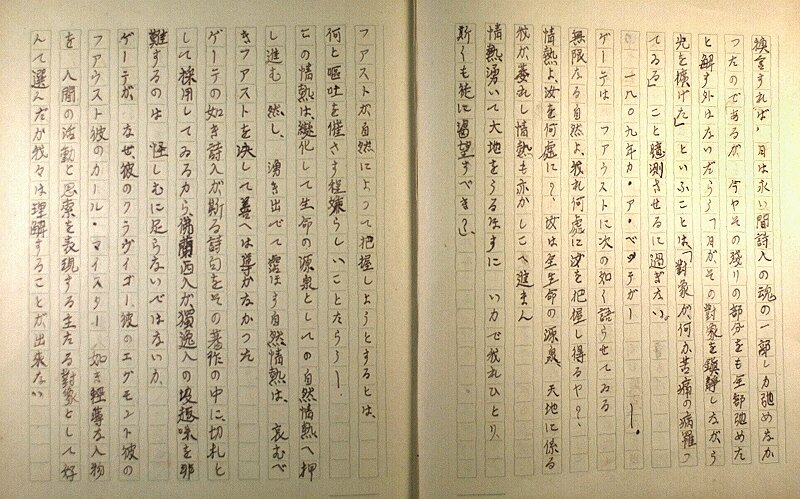 換言すれば、月は永い間詩人の魂の一部しか弛めなか
つたのであるが、今やその残りの部分をも全部弛めた
と解す外はないだらう「月が、その対象を鎮静しながら
光を横げた」といふことは、「対象が、何か苦痛の病罹つ
てゐる」こと臆測させるに過ぎない。
一八〇九年カ・ア・ベッテガー
ゲーテは ファウストに次の如く語らせてゐる
無限なる自然よ、我れ何處に汝を把握し得るや?、
情熱よ、汝を何處に?、汝は全生命の源泉、天地に係る
我が萎れし情熱も亦かしこへ進まん
情熱湧いて大地をうるほすに いかで我れひとり、
斯くも徒に渇望すべき?」、
ファストが自然によって把握しようとするとは、
何と嘔吐を催さす程嫌らしいことだらう!
この情熱は、凝化して生命の源泉としての自然情熱へ押
し進む 然し、湧き出でて霑ほす自然情熱は、哀むべ
きファストを決して善へは導かなかつた
ゲーテの如き詩人が斯る詩句をその著作の中に、切札と
して採用してゐるから、佛蘭西人が獨逸人の没趣味を非
難するのは 怪しむに足らないではないか、
ゲーテが なぜ、彼のクラヴイゴー彼のエグモント彼の
ファウスト彼のカール・マイスター 如き軽蔑な人物
を 人間の活動と思索を表現する主たる対象として好
んで選んだか我々は理解することが出来ない